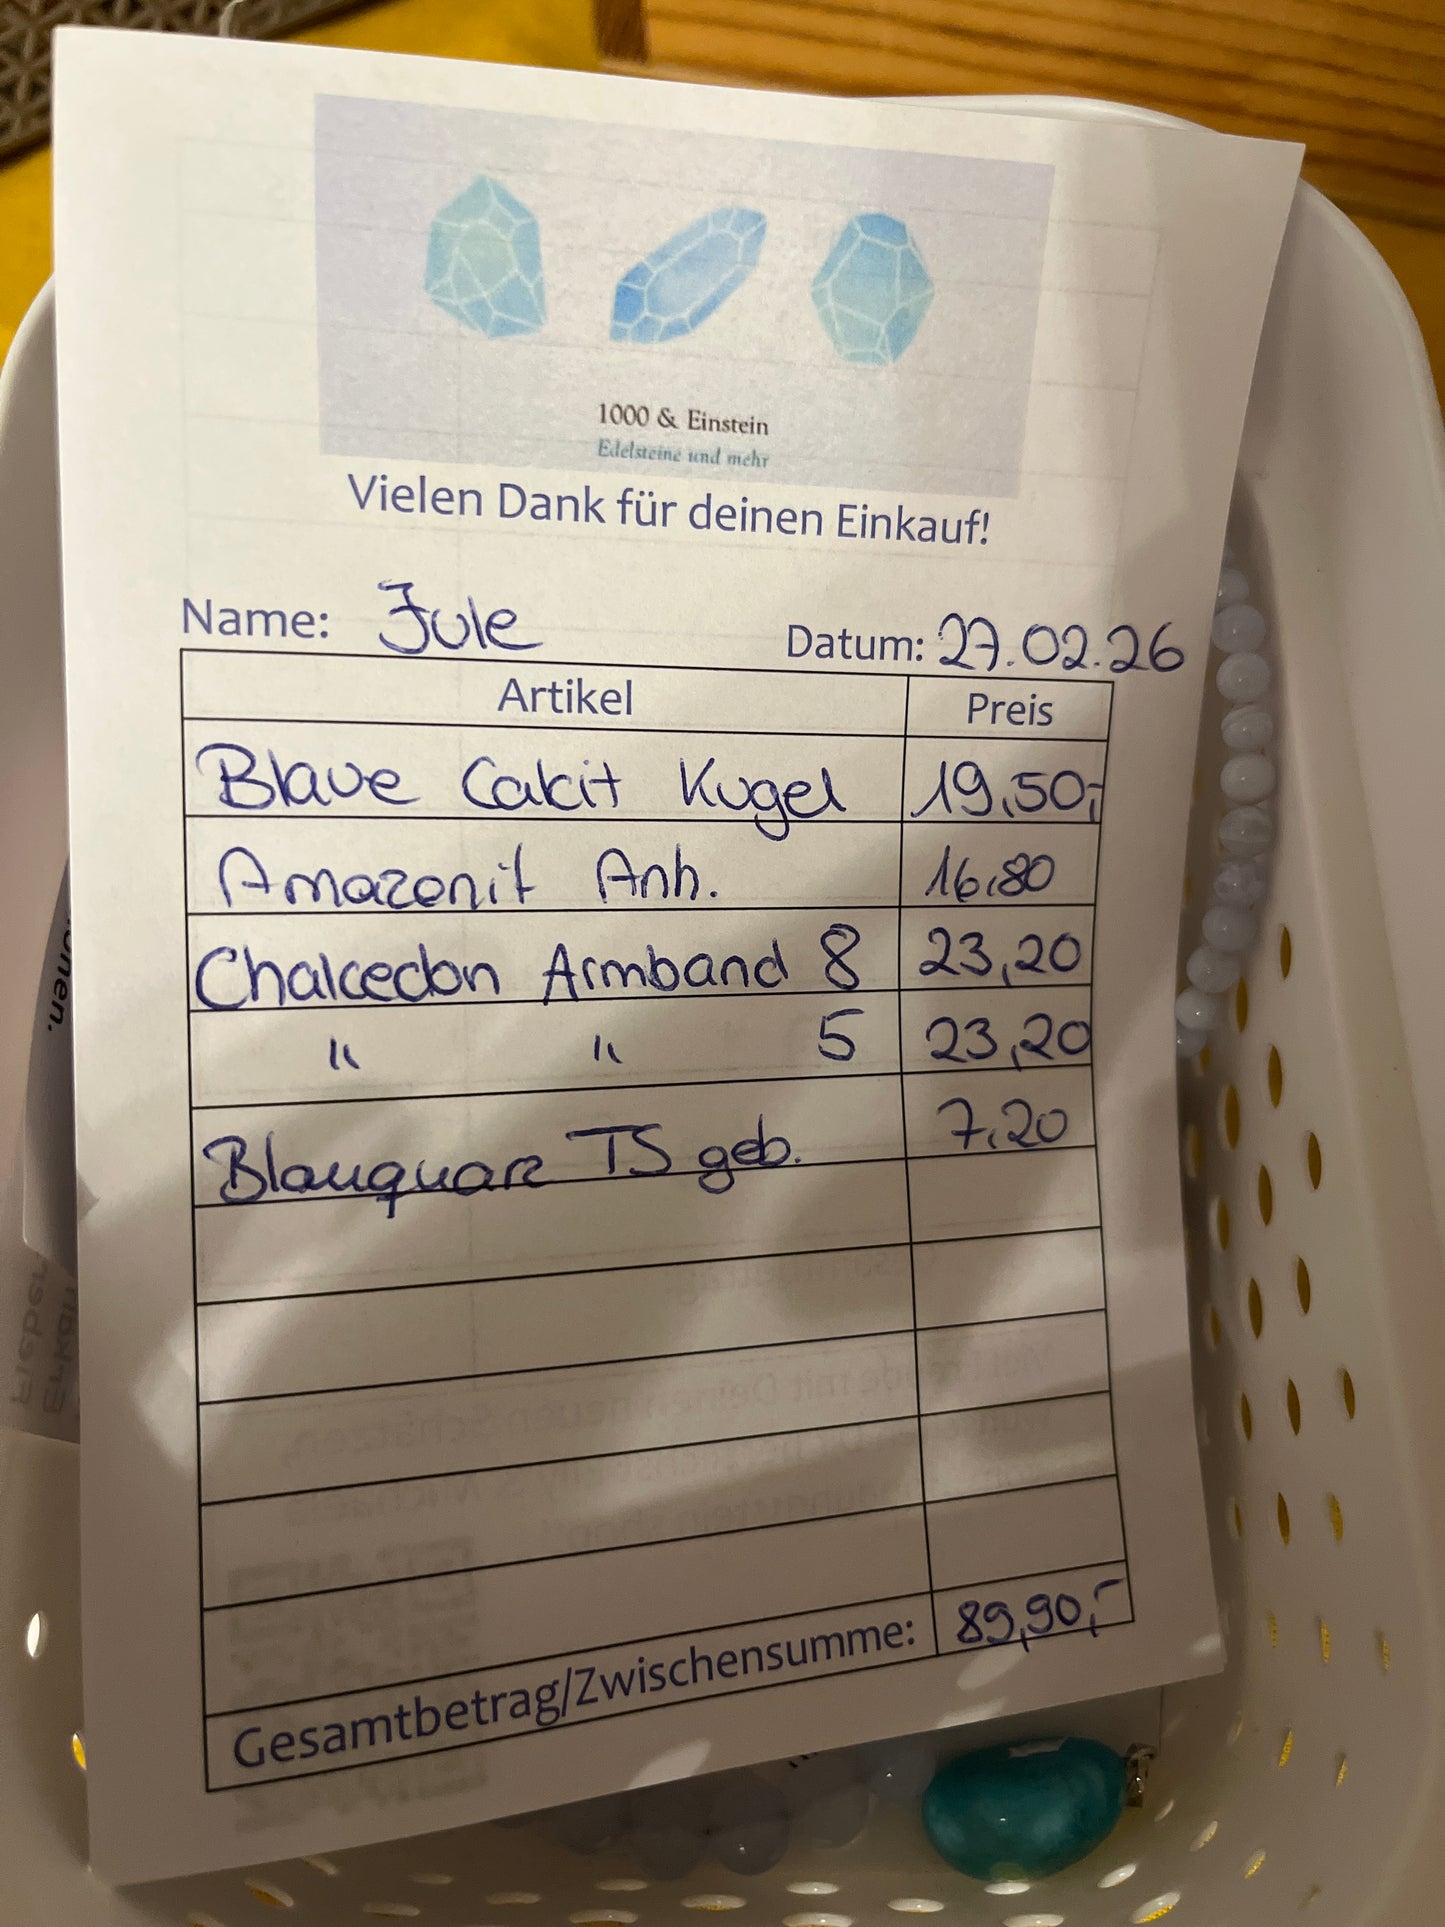 1000 & Einstein
Edelsteine und mehr
Vielen Dank für deinen Einkauf!
Name: Jule Datum: 27.02.26
Artikel Preis
Blaue Calcit Kugel 19,50,-
Amazonit Anh. 16,80
Chalcedon Armband 8 23,20
" " 5 23,20
Blauquarz TS geb. 7,20
Gesamtbetrag/Zwischensumme: 89,90,-